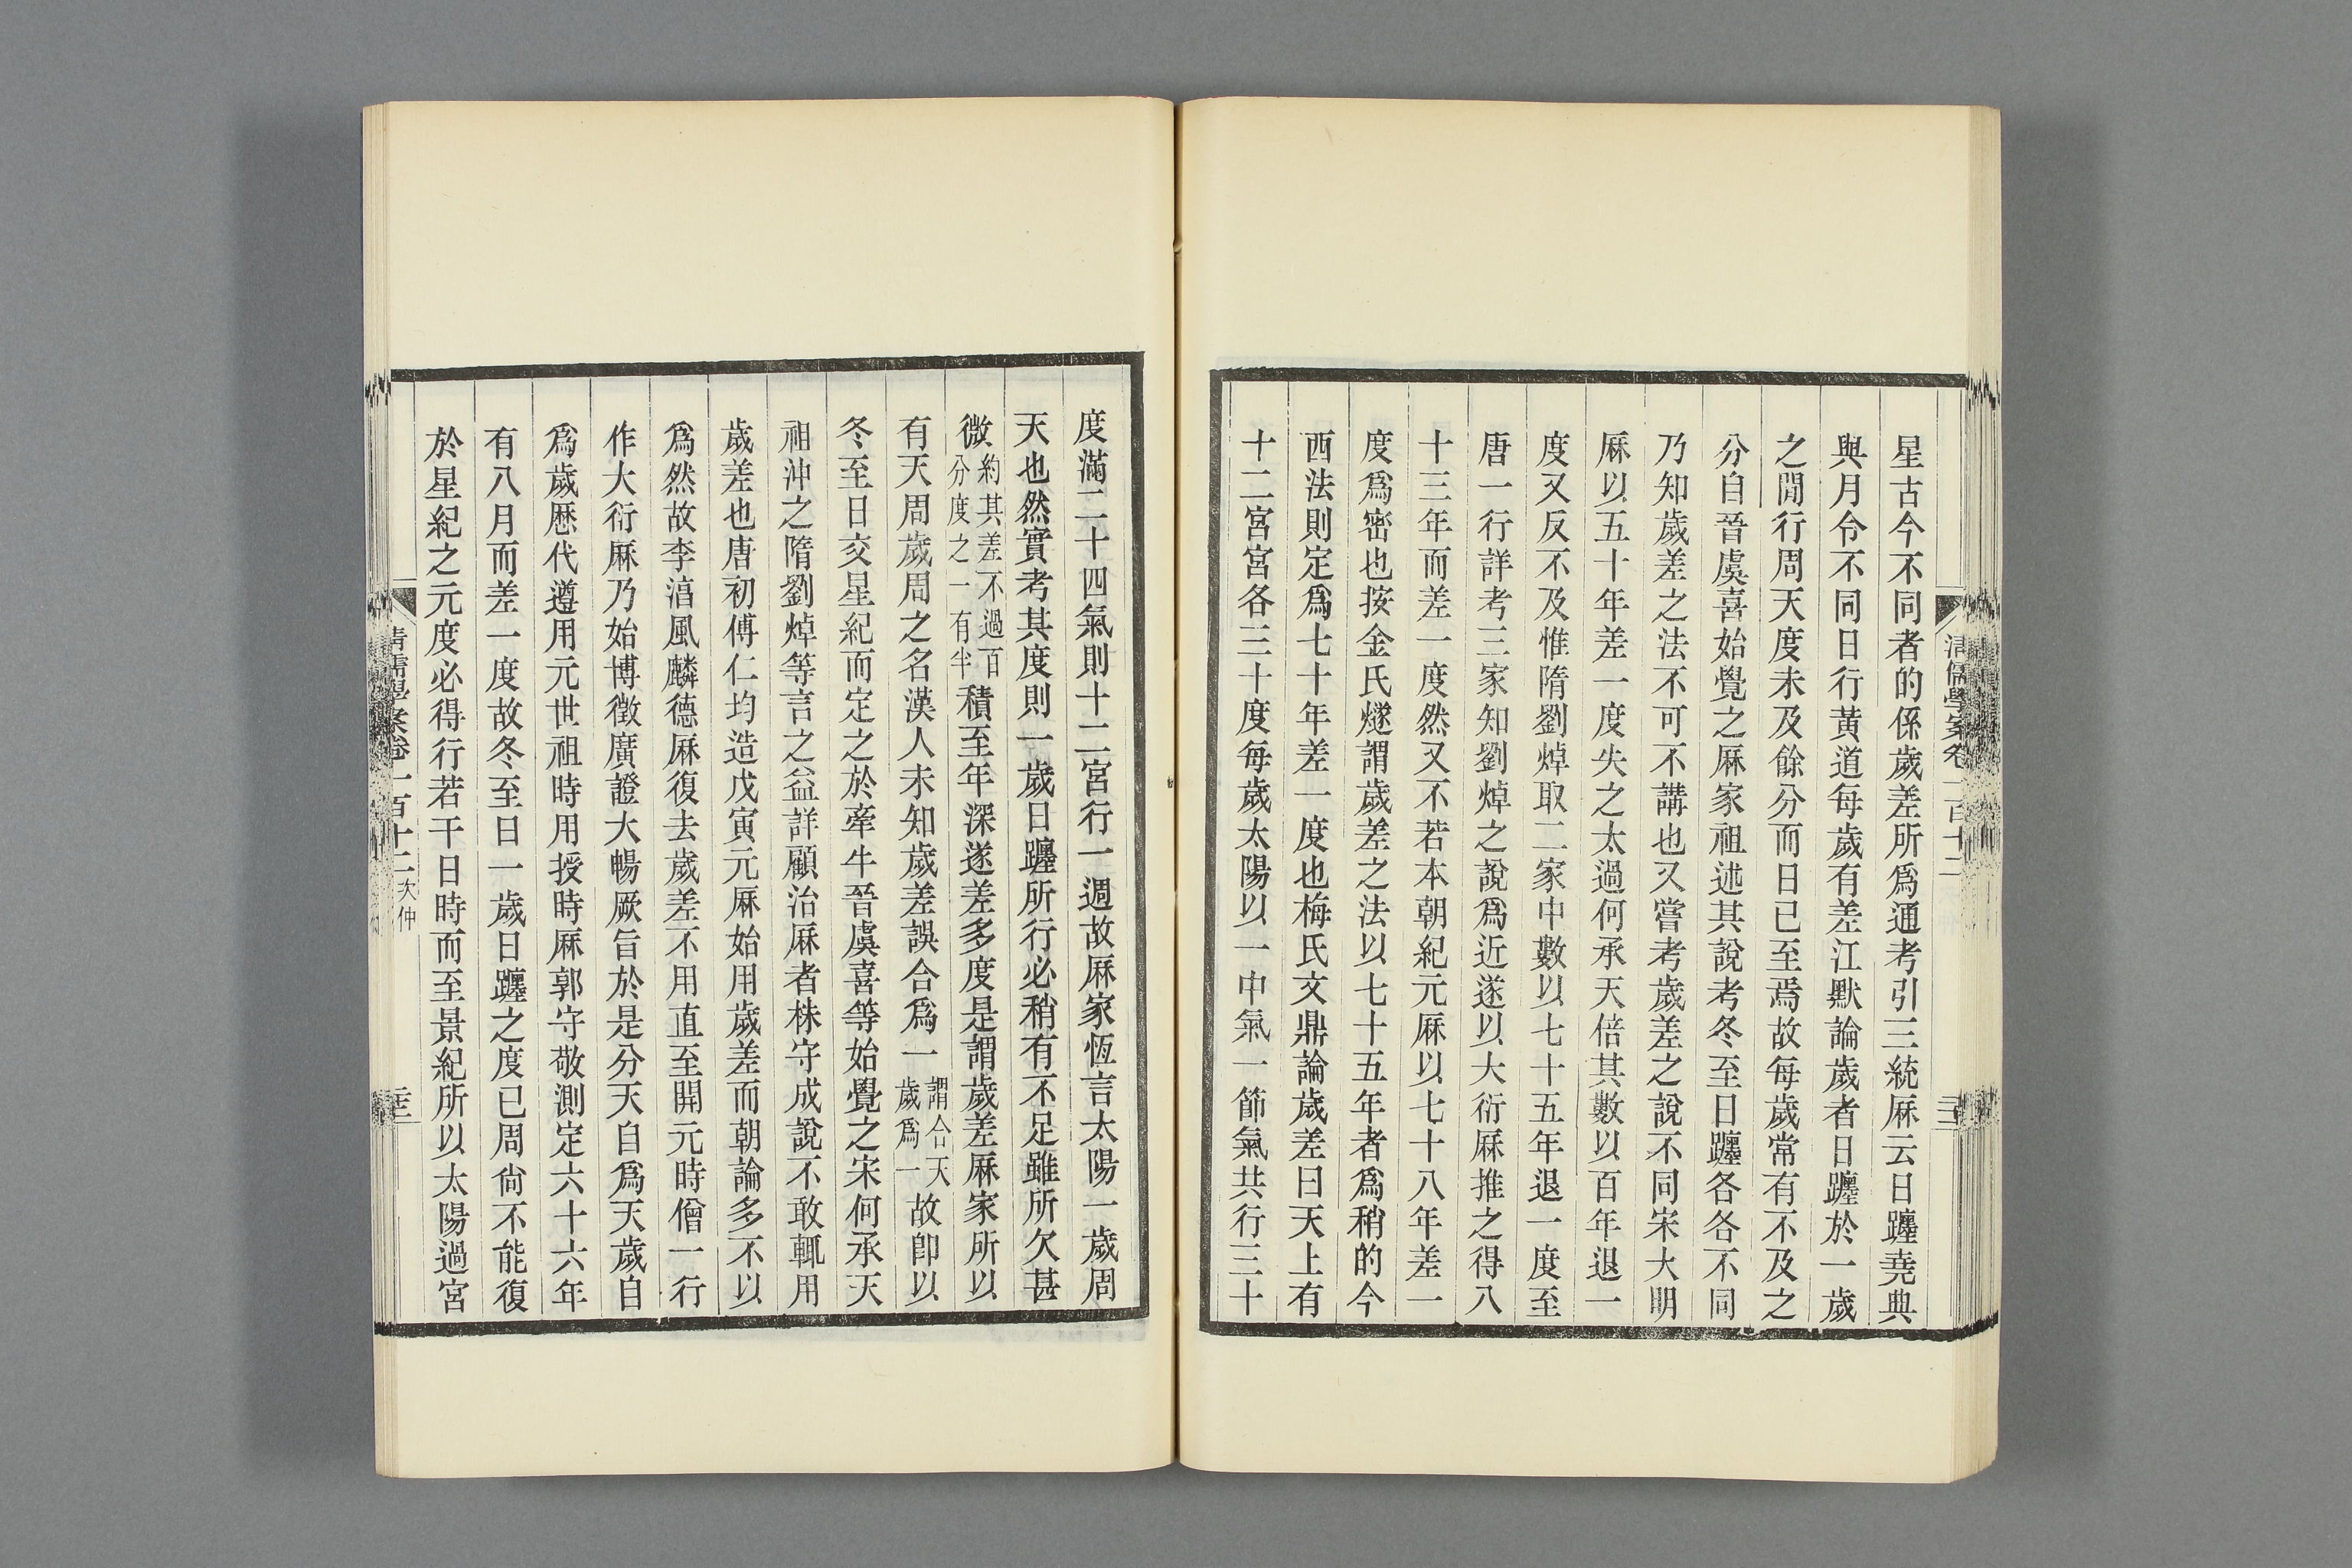 星古今不同者的係歲差所爲通考引三統厤云日躔堯典
與月令不同日行黃道每歲有差江默論歲者日躔於一歲
之閒行周天度未及餘分而日已至焉故每歲常有不及之
分自晉虞喜始覺之厤家祖述其說考冬至日躔各各不同
乃知歲差之法不可不講也又嘗考歲差之說不同宋大明
厤以五十年差一度失之太過何承天倍其數以百年退一
度又反不及惟隋劉焯取二家中數以七十五年退一度至
唐一行詳考三家知劉焯之說爲近遂以大衍厤推之得八
十三年而差一度然又不若本朝紀元厤以七十八年差一
度爲密也按金氏燧謂歲差之法以七十五年者爲稍的今
西法則定爲七十年差一度也梅氏文鼎論歲差曰天上有
十二宮宮各三十度每歲太陽以一中氣一節氣共行三十
清儒學案卷一百十二
度滿二十四氣則十二宮行一週故厤家恆言太陽一歲周
天也然實考其度則一歲日躔所行必稍有不足雖所欠甚
微約其差不過百分度之一有半積至年深遂差多度是謂歲差厤家所以
有天周歲周之名漢人未知歲差誤合爲一謂合天歲爲一故卽以
冬至日交星紀而定之於牽牛晉虞喜等始覺之宋何承天
祖沖之隋劉焯等言之益詳顧治厤者株守成說不敢輒用
歲差也唐初傅仁均造戊寅元厤始用歲差而朝論多不以
爲然故李淳風麟德厤復去歲差不用直至開元時僧一行
作大衍厤乃始博徵廣證大暢厥旨於是分天自爲天歲自
爲歲歷代遵用元世祖時用授時厤郭守敬測定六十六年
有八月而差一度故冬至日一歲日躔之度已周尙不能復
於星紀之元度必得行若干日時而至景紀所以太陽過宮
清儒學案卷一百十二 次仲